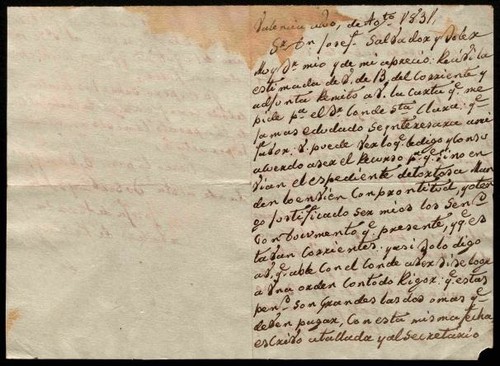 Valencia y Ado, de Agto 1831,
Sr Dn Josef Salvador y Soler
Muy Sr mio y de mi aprecio: Recibí la
estimada de V. de 13, del Corriente y
adjunta Remito a V. la Carta qe me
pide pa el Sr Conde Sta Clara: qe
jamas edudado se ynteresara a mi
fabor. V. puede ver lo qe le digo y Con su
acuerdo aser el Recurso pa qe si no en
bian el espediente de tortosa Man
den lo enbien Con prontitud, yo ten
go justificado ser mios los
Con documento qe presente, y qe es
taban Corrientes. y asi solo digo
a V. qe able Con el Conde a ber si se loge
a una orden Con todo Rigor: qe estas
penas son grandes las dos o mas qe
deben pagar, Con esta misma fecha
escribo a tallada y al Secretario